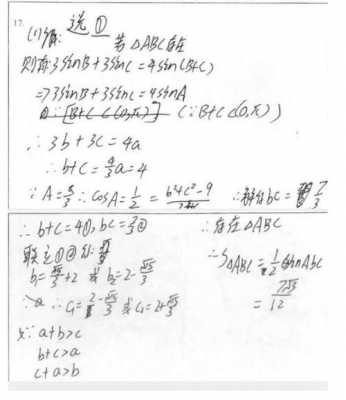 17.
(1) 解: 选①
若△ABC存在
则有:3sinB+3sinC=4sin(B+C)
⇒3sinB+3sinC=4sinA
(∵B+C∈(0,π))
∴3b+3c=4a
∴b+c=4/3a=4
∵A=π/3 ∴cosA=1/2=b²+c²-9/2bc ∴解得bc=7/3
∴b+c=4①, bc=7/3②
联立①②得:
b₁=√15/3+2 或 b₂=2-√15/3
∴c₁=2-√15/3 或 c₂=2+√15/3
又∵a+b>c
b+c>a
c+a>b
∴存在△ABC
∴S△ABC=1/2 sinAbc
=7√3/12